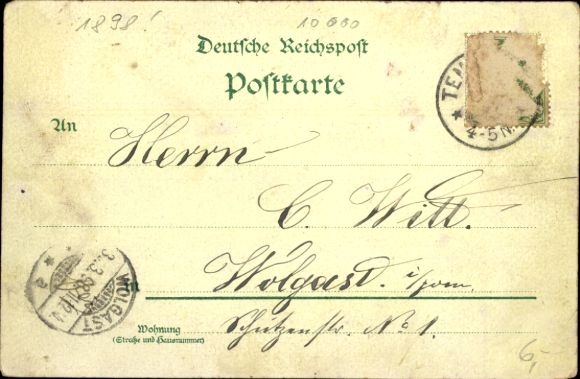 1898!
10 000
Deutsche Reichspost
Postkarte
An
Herrn
C. Witt.
Wolgast. i/pom.
in
Wohnung
(Straße und Hausnummer)
Schützenstr. No 1.
4-5N.
WOLGAST
6,-